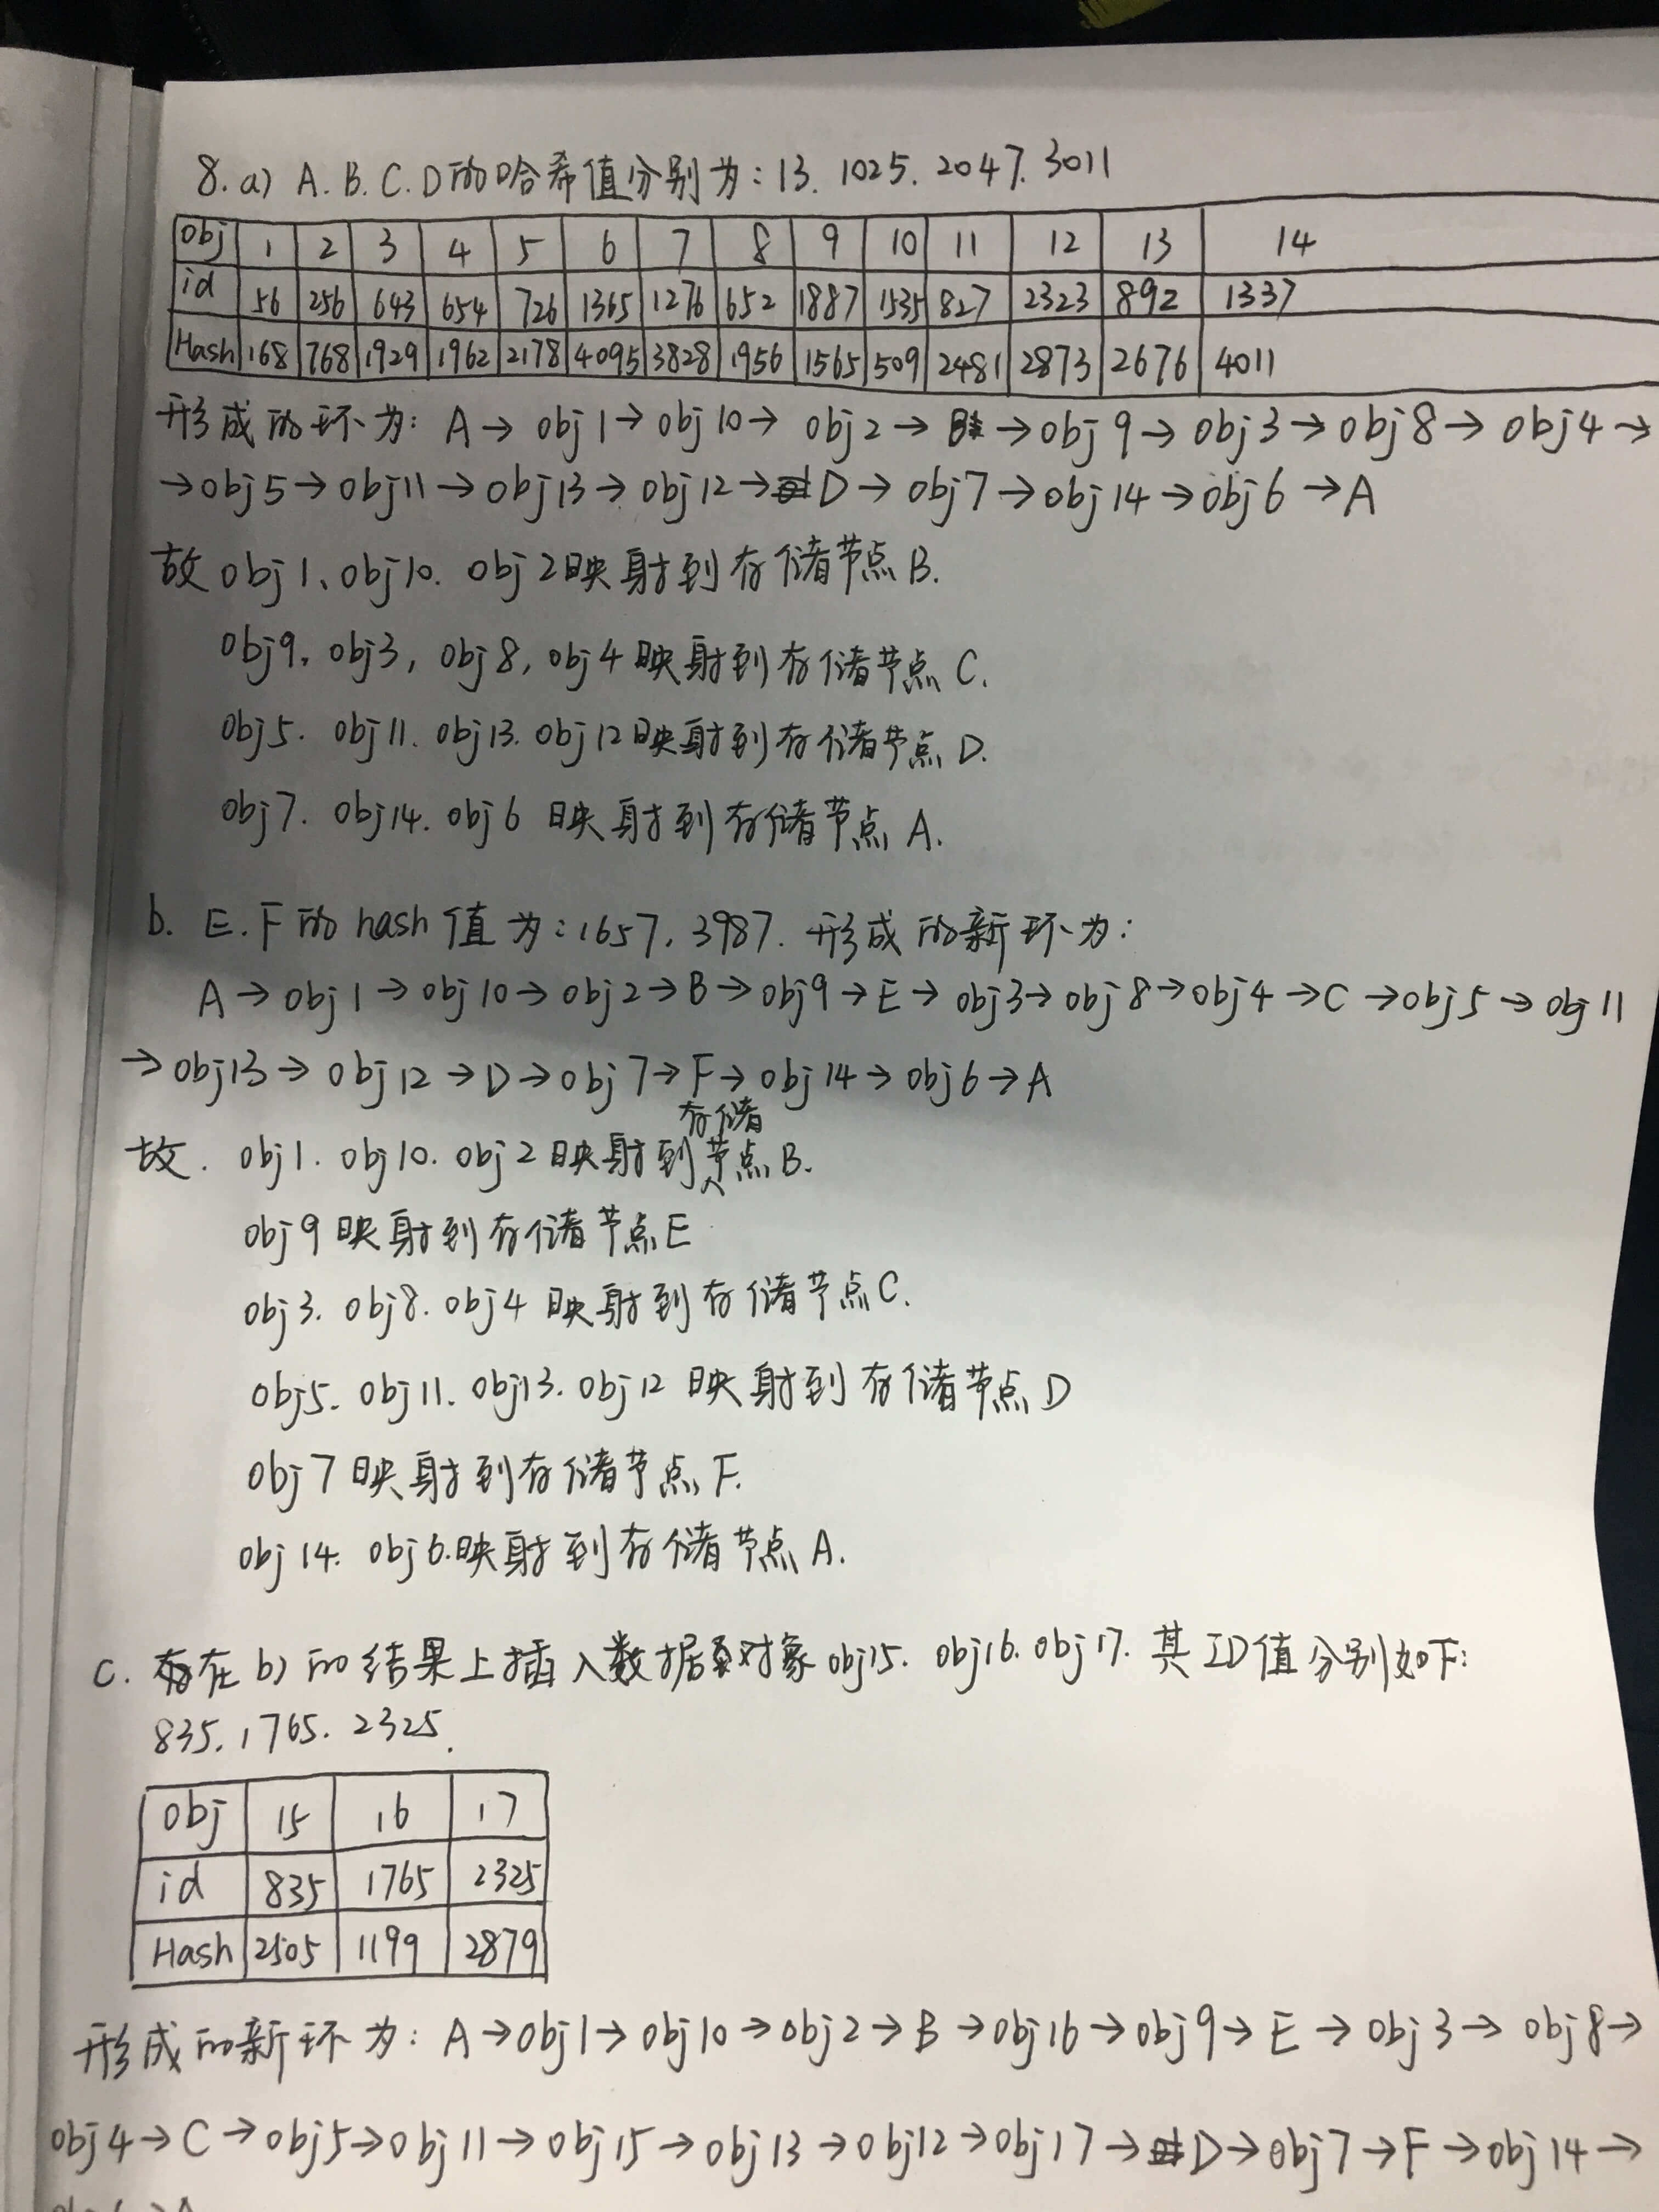 8. a) A. B. C. D的哈希值分别为: 13. 1025. 2047. 3011
obj 1 2 3 4 5 6 7 8 9 10 11 12 13 14
id 56 256 643 654 726 1365 1276 652 1887 1535 827 2323 892 1337
Hash 168 768 1929 1962 2178 4095 3828 1956 1565 509 2481 2873 2676 4011
形成的环为: A → obj 1 → obj 10 → obj 2 → B → obj 9 → obj 3 → obj 8 → obj 4 →
→ obj 5 → obj 11 → obj 13 → obj 12 → D → obj 7 → obj 14 → obj 6 → A
故 obj 1、obj 10. obj 2映射到存储节点 B.
obj9, obj3, obj8, obj4 映射到存储节点 C.
obj5. obj11. obj13. obj12映射到存储节点 D.
obj7. obj14. obj6 映射到存储节点 A.
b. E. F的 hash 值为: 1657, 3987. 形成的新环为:
A → obj 1 → obj 10 → obj 2 → B → obj 9 → E → obj 3 → obj 8 → obj 4 → C → obj 5 → obj 11
→ obj13 → obj 12 → D → obj 7 → F → obj 14 → obj 6 → A
故. obj1. obj10. obj 2 映射到存储节点 B.
obj 9 映射到存储节点 E
obj 3. obj8. obj 4 映射到存储节点 C.
obj5. obj 11. obj13. obj 12 映射到存储节点 D
obj 7 映射到存储节点 F.
obj 14. obj 6.映射到存储节点 A.
c. 在 b) 的结果上插入数据对象 obj15. obj16. obj17. 其ID值分别如下:
835. 1765. 2325.
obj 15 16 17
id 835 1765 2325
Hash 2505 1199 2879
形成的新环为: A → obj 1 → obj 10 → obj 2 → B → obj 16 → obj 9 → E → obj 3 → obj 8 →
obj 4 → C → obj 5 → obj 11 → obj 15 → obj 13 → obj 12 → obj 17 → D → obj 7 → F → obj 14 →